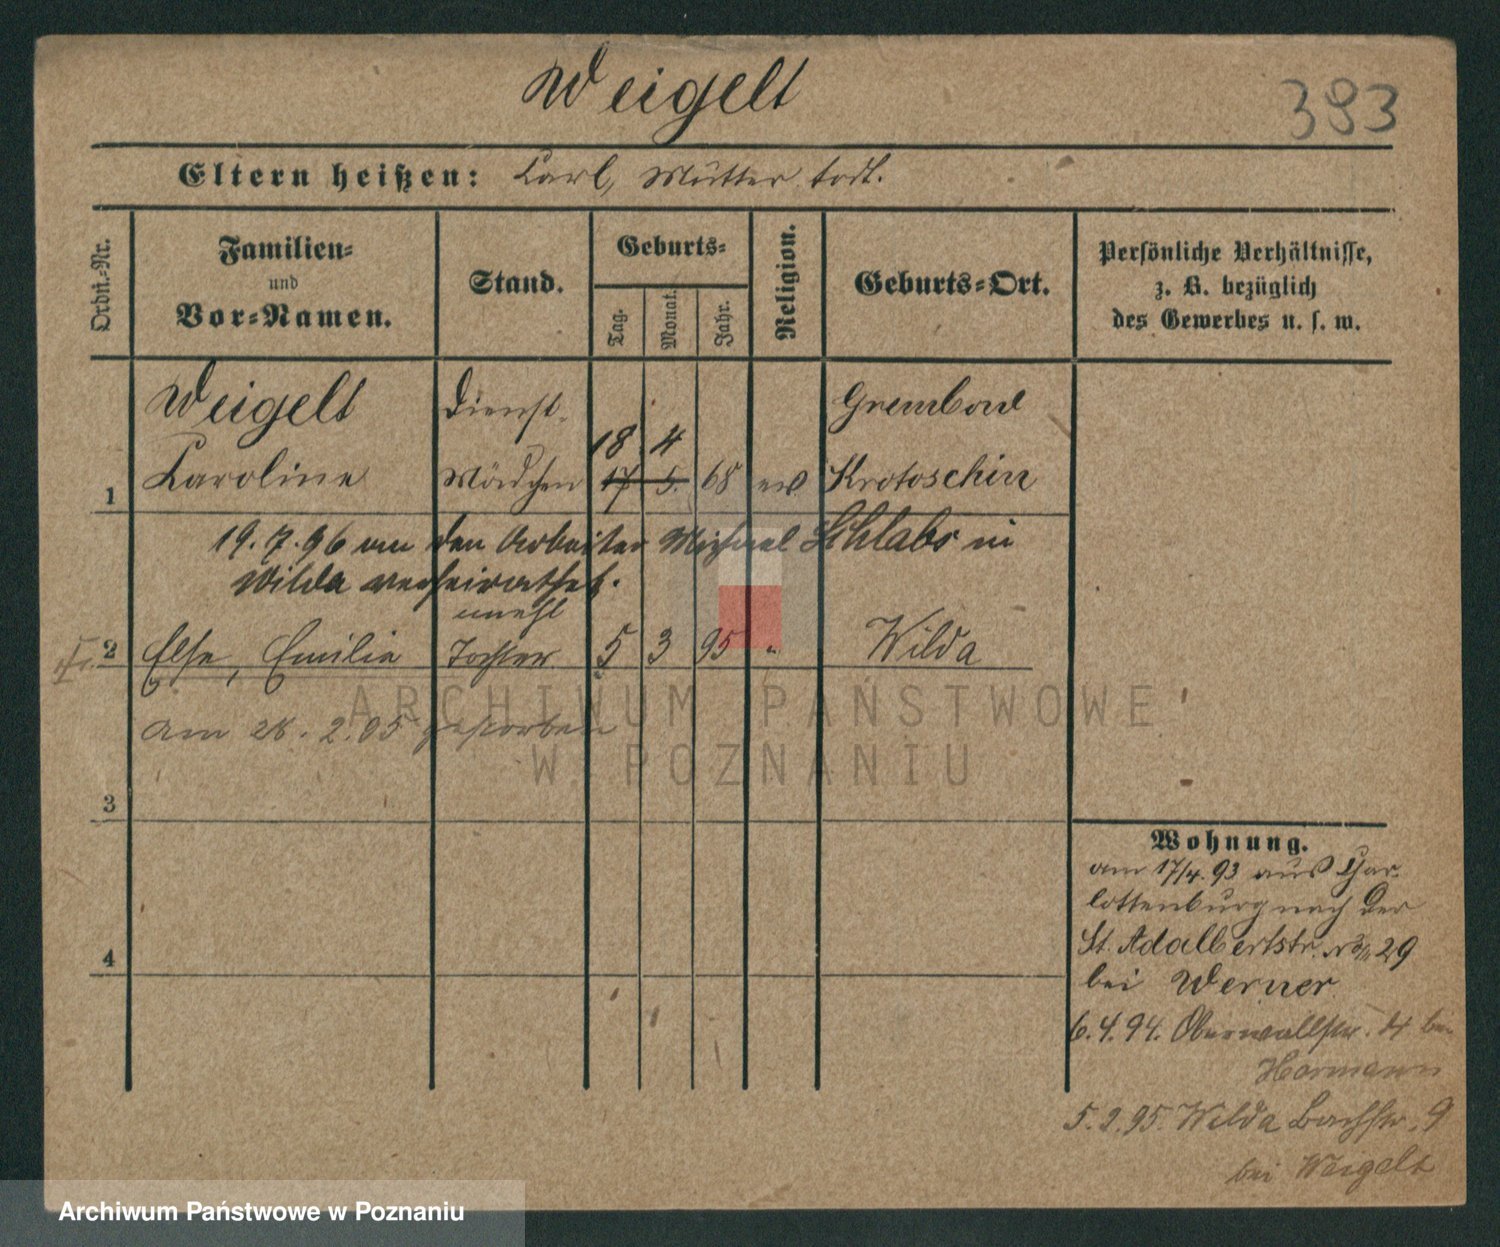 Weigelt
383
Eltern heißen: Carl, Mutter todt.
Ordn.-Nr.
Familien-
und
Vor-Namen.
Stand.
Geburts-
Tag.
Monat.
Jahr.
Religion.
Geburts-Ort.
Persönliche Verhältnisse,
z. B. bezüglich
des Gewerbes u. s. w.
Weigelt Dienst- Grembow
18 4
1 Caroline Mädchen 17 5. 68 ev Krotoschin
19.7.96 an den Arbeiter Michael Schlabs in
Wilda verheirathet.
unehl
2 Else, Emilie Tochter 5 3 95 " Wilda
am 28.2.05 gestorben
3
4
Wohnung.
am 17/4.93 aus Char-
lottenburg nach der
St. Adalbertstr. No 29
bei Werner
6.4.94. Oberwallstr. 4 bei
Hormann
5.2.95. Wilda Bachstr. 9
bei Weigelt
ARCHIWUM PAŃSTWOWE
W POZNANIU
Archiwum Państwowe w Poznaniu